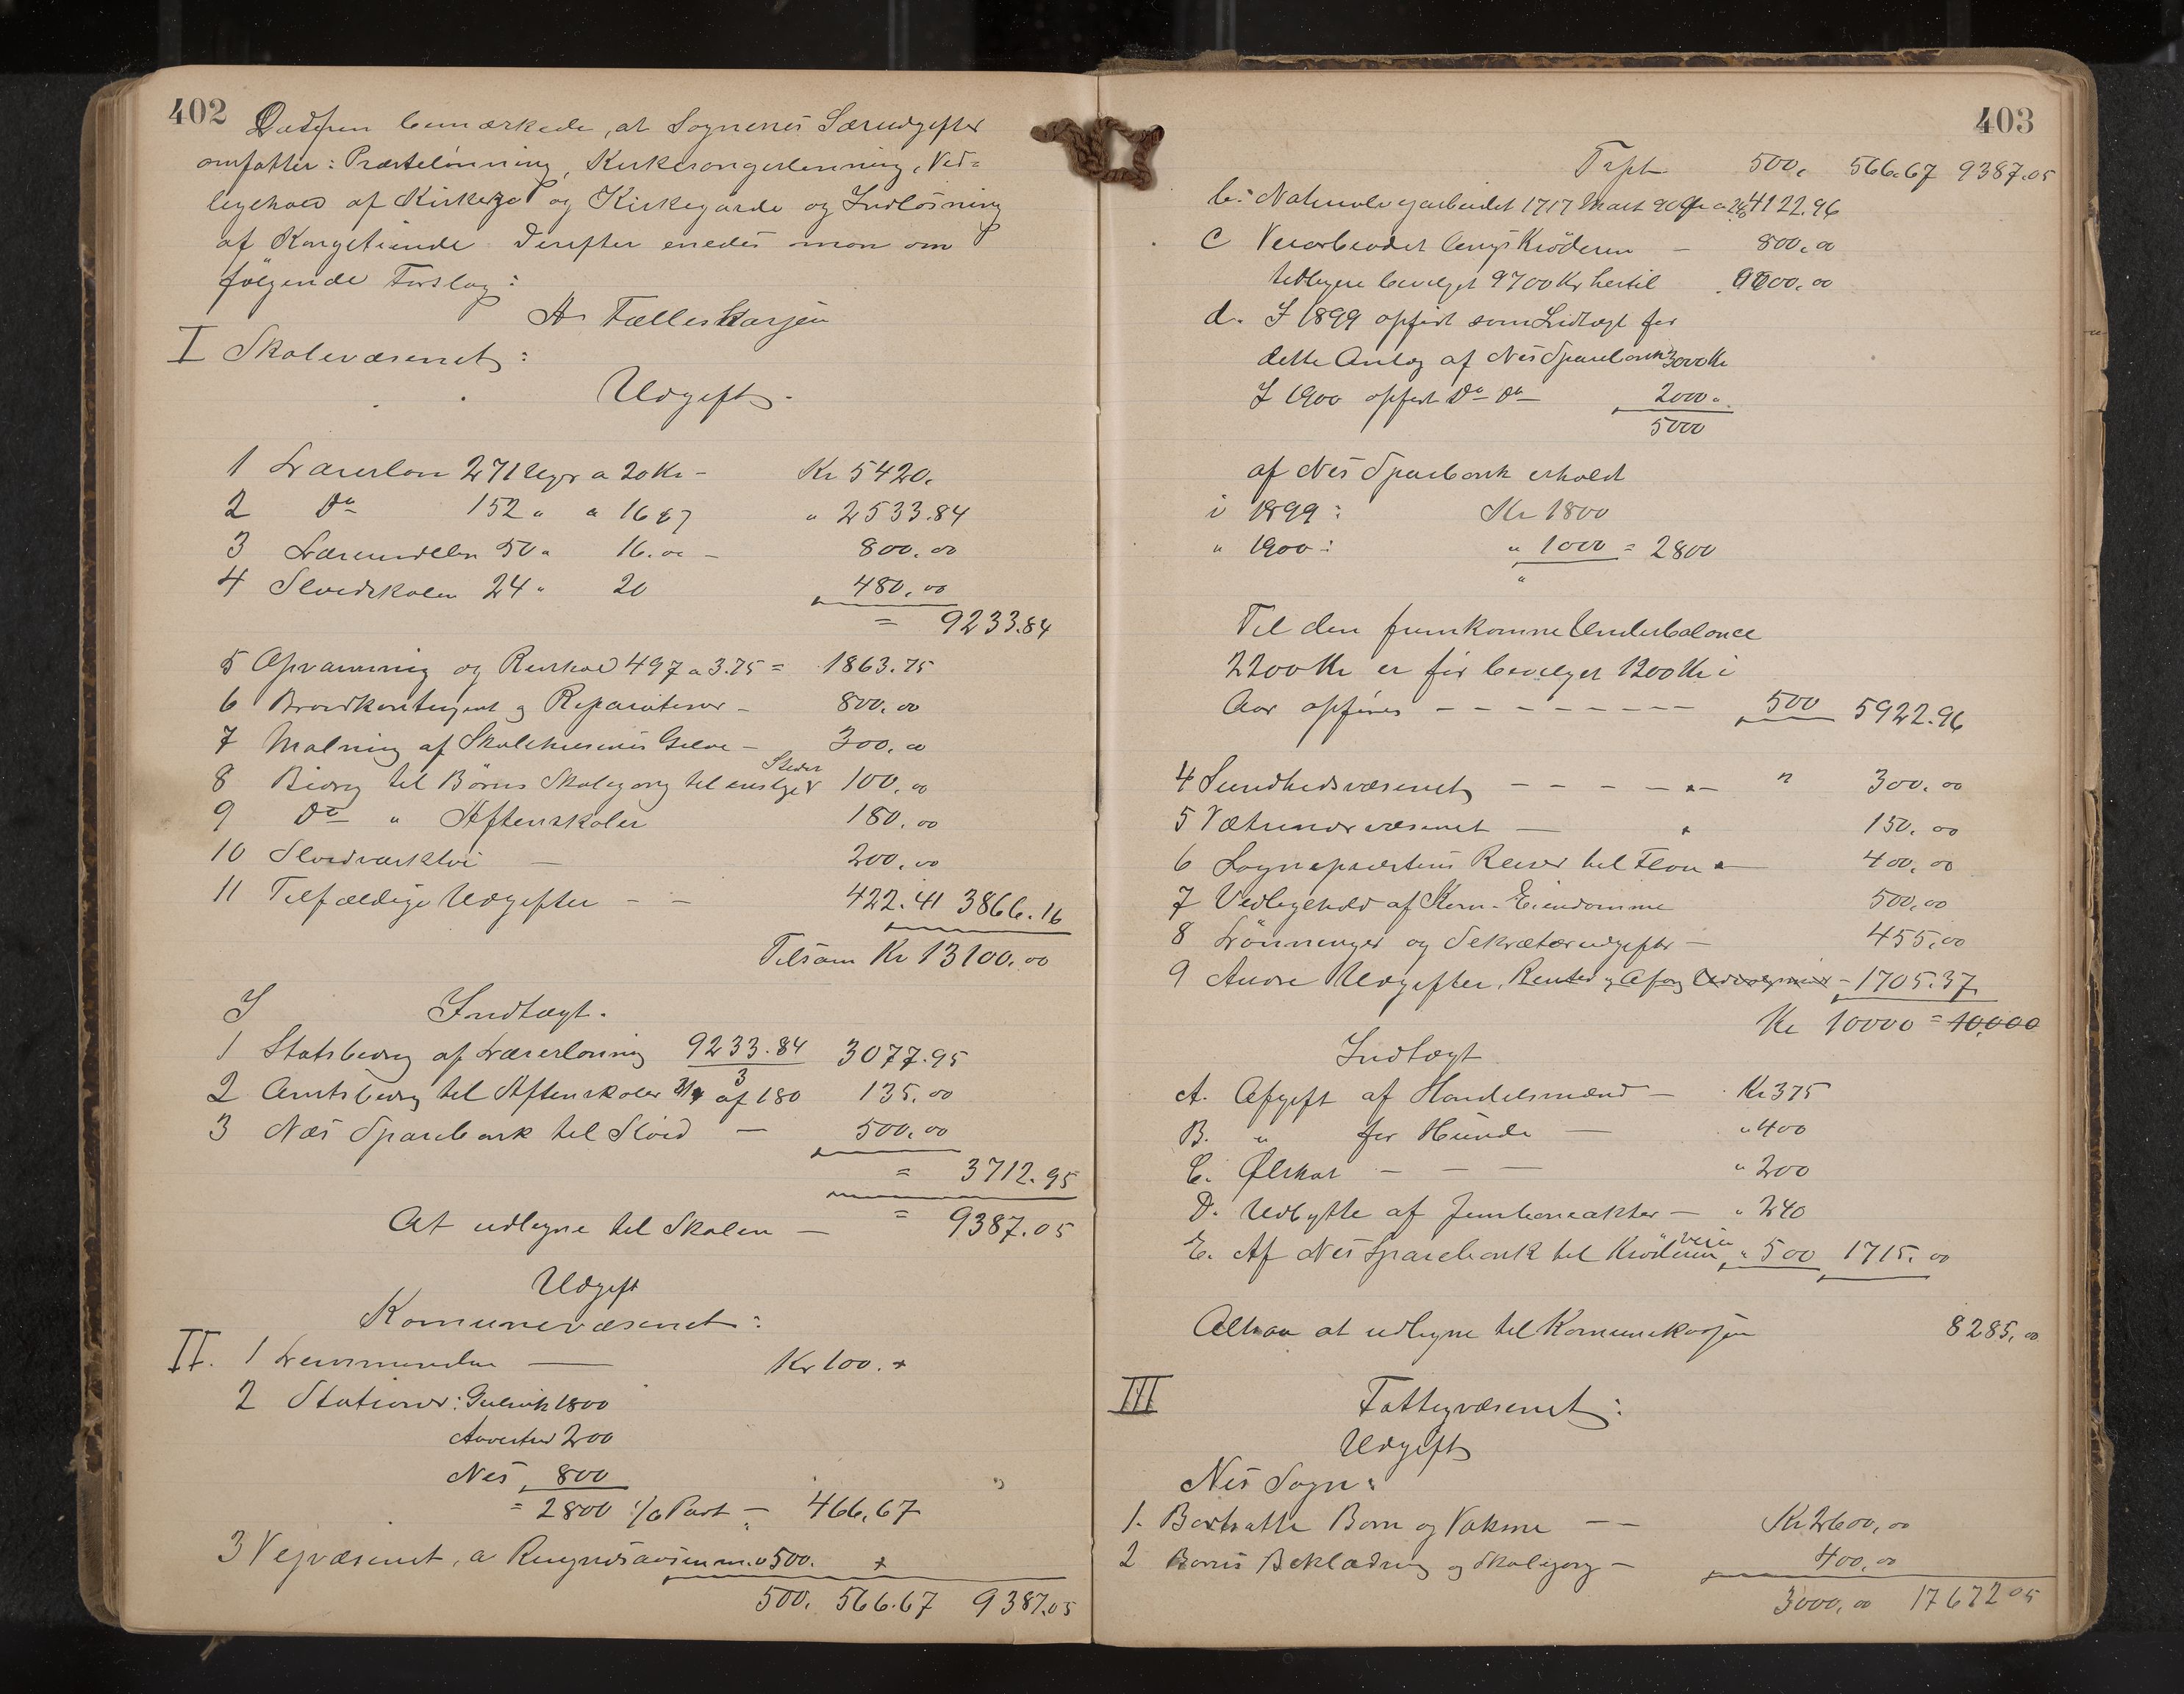 402
bemærkede, at Sognenes Særudgifter
omfatter: Præstelønning, Kirkesangerlønning, Ved=
ligehold af Kirker og Kirkegårde og Indløsning
af Kongetiende. Derefter enedes man om
følgende Forslag:
A. Fælleskassen
I Skolevæsenet:
Udgift.
1 Lærerløn 271 Uger a 20 Kr - Kr 5420.
2 Do 152 " a 16 67 " 2533.84
3 50 " 16.00 - 800.00
4 Sløidskolen 24 " 20 480.00
= 9233.84
5 Opvarmning og Renhold 497 a 3.75 = 1863.75
6 Brandkontingent og Reparationer - 800.00
7 Maling af Skolehusenes Gulve - 300.00
8 Bidrag til Børns Skolegang til enslige Steder 100.00
9 Do " Aftenskoler 180.00
10 Sløidværktøi - 200.00
11 Tilfældige Udgifter - - 422.41 3866.16
Tilsam Kr 13100.00
I Indtægt.
1 Statsbidrag af Lærerlønning 9233.84 3077.95
3
2 Amtsbidrag til Aftenskoler 3/4 af 180 135.00
3 Næs Sparebank til Sløid - 500.00
= 3712.95
At udligne til Skolen - = 9387.05
Udgift
Komunevæsenet:
II. 1 Kr 100. +
2 Stationer: Gulsvik 1800
Aavestrud 200
Nes 800
= 2800 1/6 Part - 466.67
3 Vejvæsenet, a 500. +
500. 566.67 9387.05
403
Trpt 500. 566.67 9387.05
b: 1717 4122.96
c Veiarbeidet langs Krøderen - 800.00
tidligere bevilget 9700 Kr hertil
d. I 1899 opført som Indtægt for
dette Anlæg af Nes Sparebank 3000 Kr
I 1900 opført Do Do 2000.
5000
af Nes Sparebank erholdt
i 1899: Kr 1800
" 1900: " 1000 = 2800
"
Til den fremkomne Underbalance
2200 Kr er før bevilget 1200 Kr i
Aar opføres - - - - - - - - 500 5922.96
4 Sundhedsvæsenet - - - - - " 300.00
5 - 150.00
6 Sognepræstens Reiser til Flaa - 400.00
7 Vedligehold af Kom. Eiendomme 500.00
8 Lønninger og Sekretærudgifter - 455.00
9 Andre Udgifter, Renter og Afdrag - 1705.37
Kr 10000 = 10,000
Indtægt
A. Afgift af Handelsmænd - Kr 375
B. " for Hunde - " 400
C. Ølskat - - - " 200
D. Udbytte af Jernbaneaktier - " 240
E. Af Nes Sparebank til Krøderveien " 500 1715.00
Altsaa at udligne til Komunekassen 8285.00
III Fattigvæsenet:
Udgift
Nes Sogn:
1. Bortsatte Børn og Voksne - - Kr 2600.00
2 Børns Beklædning og Skolegang - 400.00
3000.00 17672 05